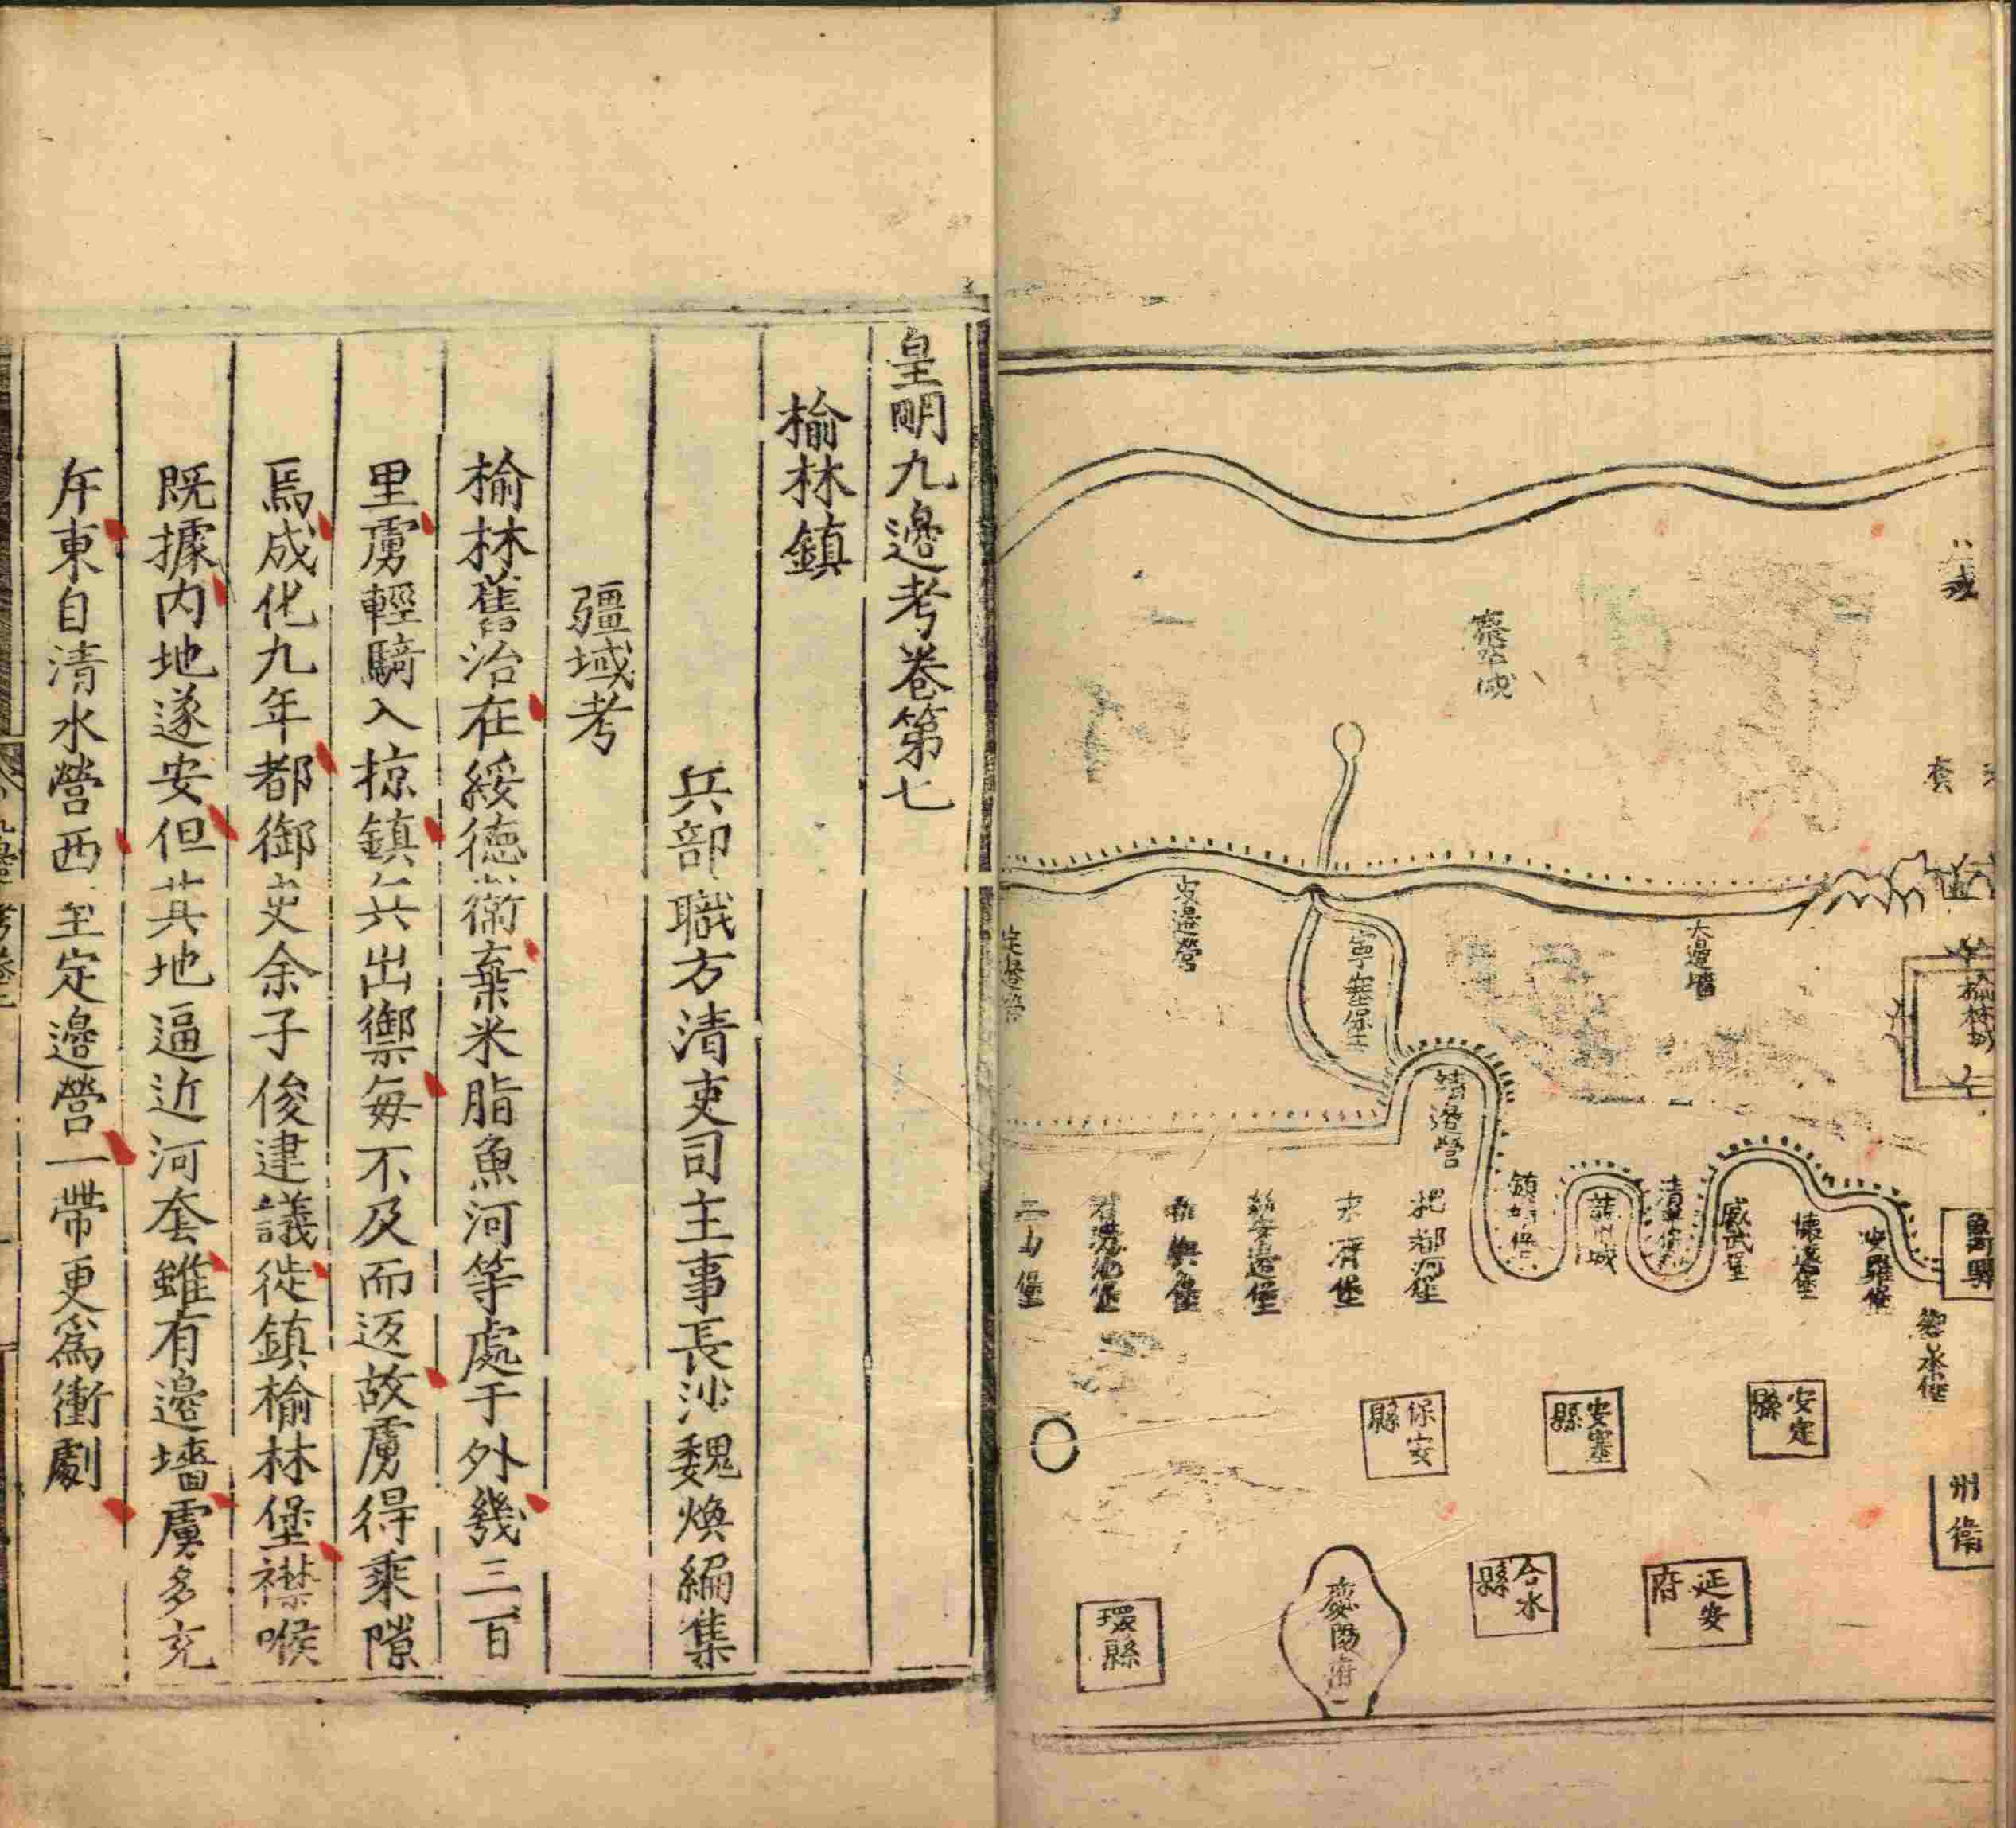 套
榆林城
大邊墻
寧塞堡
靖邊營
把都河堡
清平堡
威武堡
懷遠堡
魚河驛
安定縣
安塞縣
保安縣
州衛
延安府
合水縣
慶陽府
環縣
皇明九邊考卷第七
榆林鎮
兵部職方清吏司主事長沙魏煥編集
疆域考
榆林舊治在綏德衞棄米脂魚河等處于外幾三百
里虜輕騎入掠鎮兵出禦每不及而返故虜得乘隙
焉成化九年都御史余子俊建議徙鎮榆林堡襟喉
既據内地遂安但其地逼近河套雖有邊墻虜多充
斥東自清水營西至定邊營一帶更爲衝劇